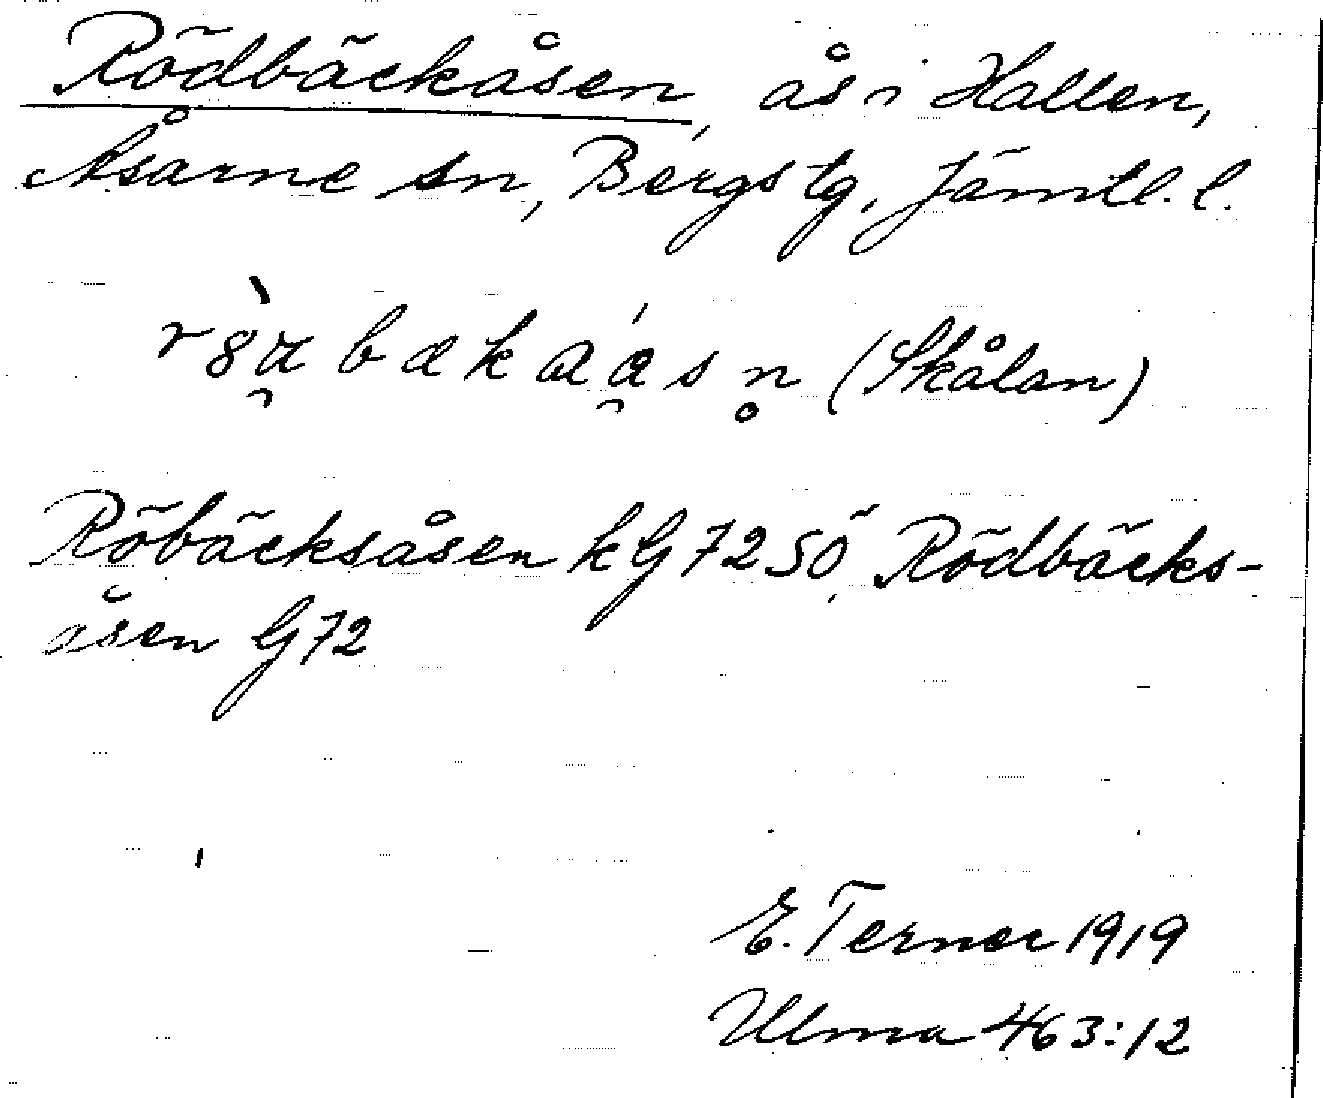 Rödbäckåsen, ås i Hallen,
Åsarne sn, Bergs tg, Jämtl. l.
(Skålan)
Röbäcksåsen kG 72 SÖ, Rödbäcks-
åsen G 72
E. Terner 1919
Ulma 463:12